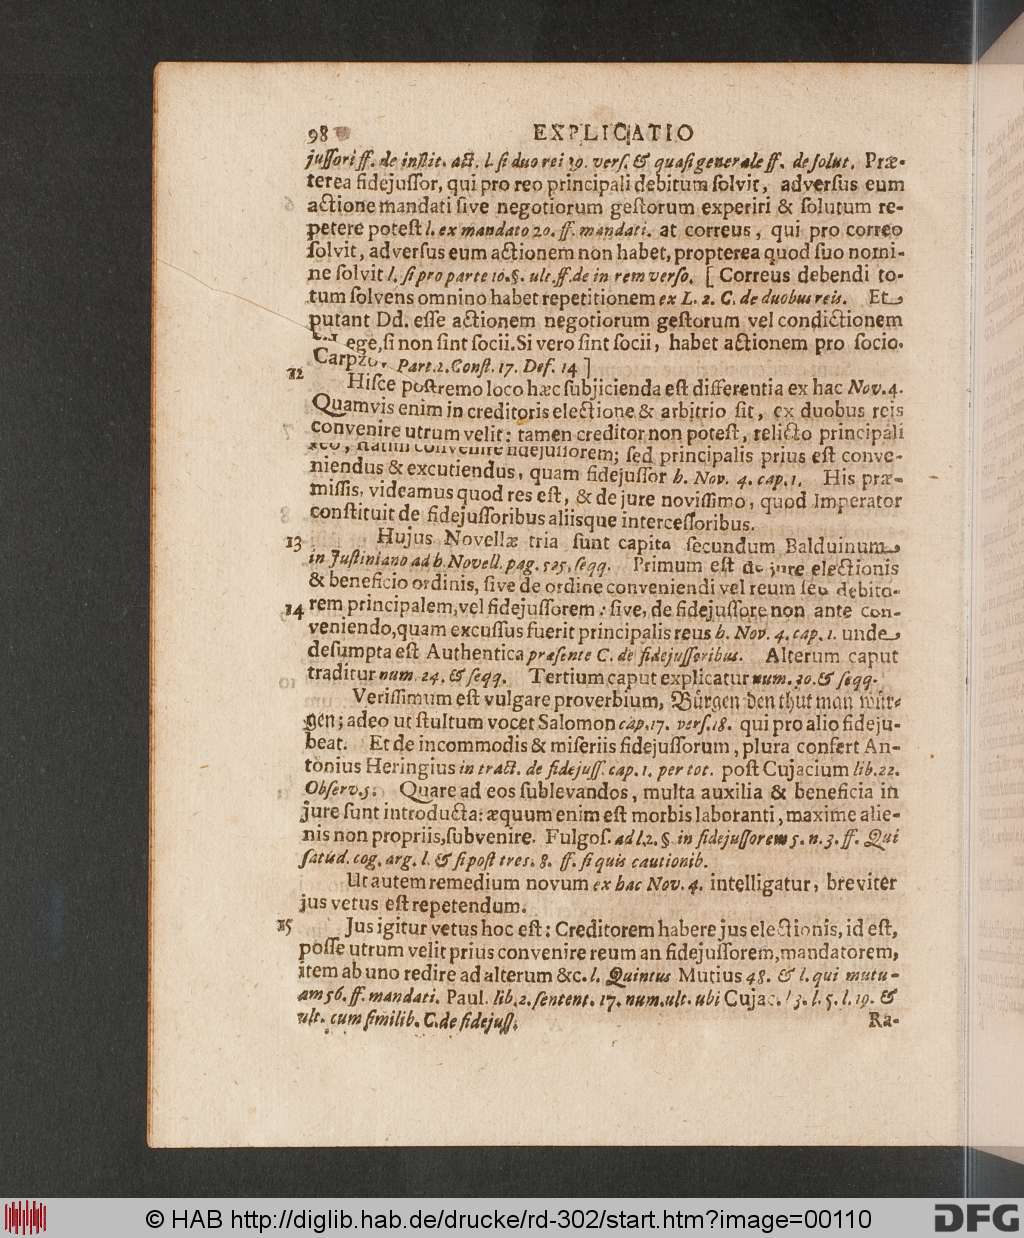 98 EXPLICATIO
jussori ff. de instit. act. l. si duo rei 19. vers. & quasi generale ff. de solut. Præ-
terea fidejussor, qui pro reo principali debitum solvit, adversus eum
actione mandati sive negotiorum gestorum experiri & solutum re-
petere potest l. ex mandato 20. ff. mandati. at correus, qui pro correo
solvit, adversus eum actionem non habet, propterea quod suo nomi-
ne solvit l. si pro parte 10. §. ult. ff. de in rem verso. [ Correus debendi to-
tum solvens omnino habet repetitionem ex L. 2. C. de duobus reis. Et
putant Dd. esse actionem negotiorum gestorum vel condictionem
ege, si non sint socii. Si vero sint socii, habet actionem pro socio.
Carpzo. Part. 2. Const. 17. Def. 14 ]
12 Hisce postremo loco hæc subjicienda est differentia ex hac Nov. 4.
Quamvis enim in creditoris electione & arbitrio sit, ex duobus reis
convenire utrum velit: tamen creditor non potest, relicto principali
reo, statim convenire fidejussorem; sed principalis prius est conve-
niendus & excutiendus, quam fidejussor h. Nov. 4. cap. 1. His præ-
missis, videamus quod res est, & de jure novissimo, quod Imperator
constituit de fidejussoribus aliisque intercessoribus.
13 Hujus Novellæ tria sunt capita secundum Balduinum
in Justiniano ad h. Novell. pag. 525. seqq. Primum est de jure electionis
& beneficio ordinis, sive de ordine conveniendi vel reum seu debito-
14 rem principalem, vel fidejussorem: sive, de fidejussore non ante con-
veniendo, quam excussus fuerit principalis reus h. Nov. 4. cap. 1. unde
desumpta est Authentica præsente C. de fidejussoribus. Alterum caput
traditur num. 24. & seqq. Tertium caput explicatur num. 30. & seqq.
Verissimum est vulgare proverbium, Bürgen den thut man wür-
gen; adeo ut stultum vocet Salomon cap. 17. vers. 18. qui pro alio fideju-
beat. Et de incommodis & miseriis fidejussorum, plura confert An-
tonius Heringius in tract. de fidejuss. cap. 1. per tot. post Cujacium lib. 22.
Observ. 5. Quare ad eos sublevandos, multa auxilia & beneficia in
jure sunt introducta: æquum enim est morbis laboranti, maxime alie-
nis non propriis, subvenire. Fulgos. ad l. 2. §. in fidejussorem 5. n. 3. ff. Qui
satisd. cog. arg. l. & si post tres. 8. ff. si quis cautionib.
Ut autem remedium novum ex hac Nov. 4. intelligatur, breviter
jus vetus est repetendum.
15 Jus igitur vetus hoc est: Creditorem habere jus electionis, id est,
posse utrum velit prius convenire reum an fidejussorem, mandatorem,
item ab uno redire ad alterum &c. l. Quintus Mutius 48. & l. qui mutu-
am 56. ff. mandati. Paul. lib. 2. sentent. 17. num. ult. ubi Cujac. l 3. l. 5. l. 19. &
ult. cum similib. C. de fidejuss.
Ra-
© HAB http://diglib.hab.de/drucke/rd-302/start.htm?image=00110
DFG